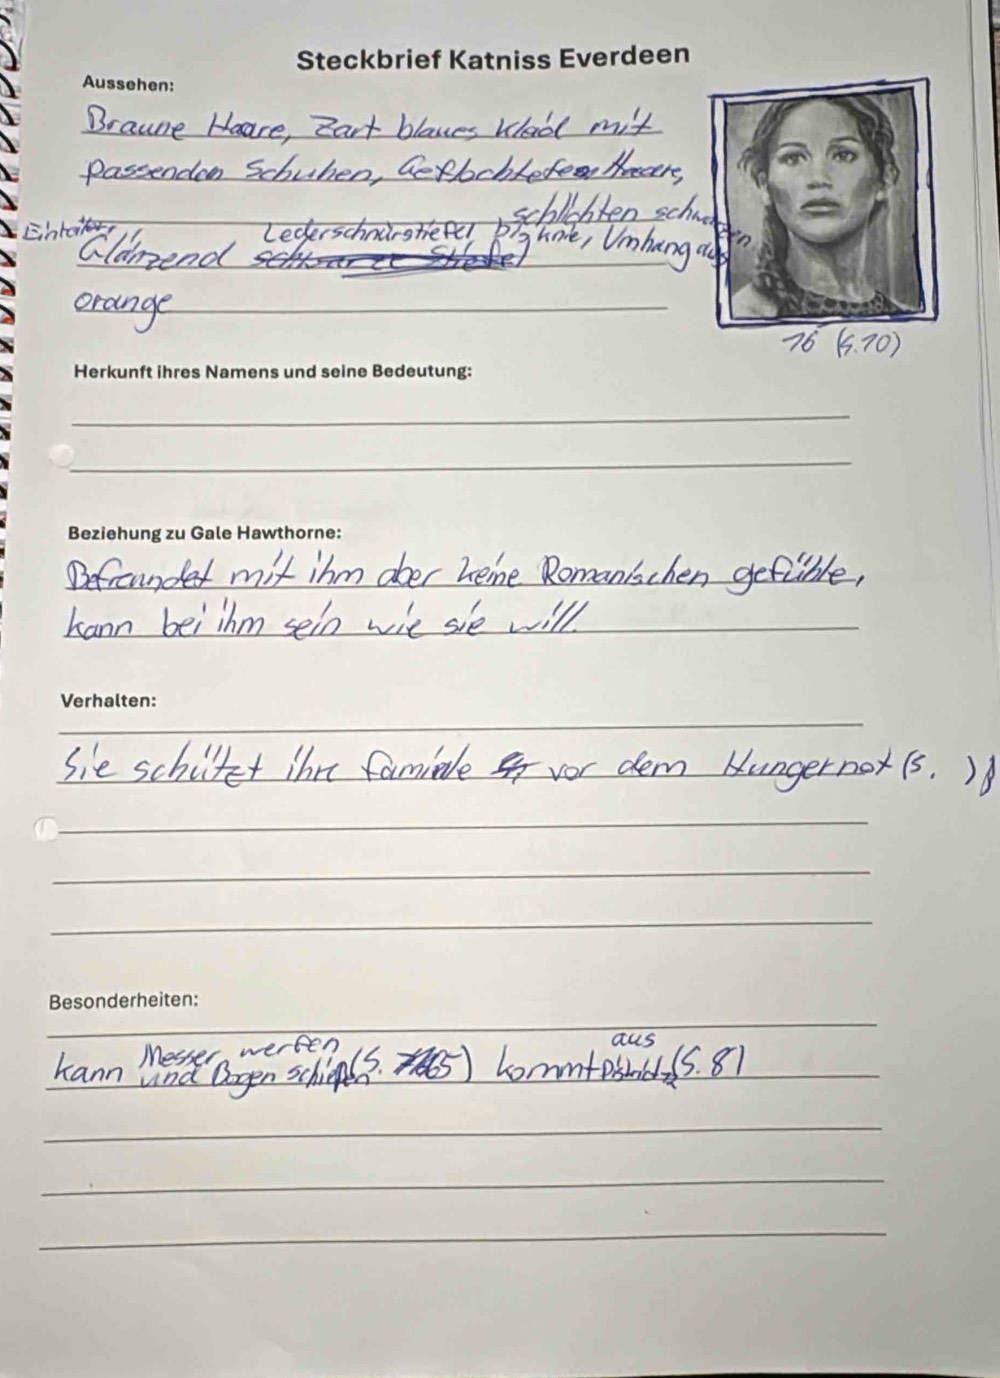 Steckbrief Katniss Everdeen
Aussehen:
Braune Haare, Zart blaues Kleid mit
passenden Schuhen, Geflochtetem Haare,
schlichten schwarzen
Einteiler, Lederschnürstiefel bis knie, Umhang aus
Glänzend schwarze Stiefel
orange
16 (S.10)
Herkunft ihres Namens und seine Bedeutung:
Beziehung zu Gale Hawthorne:
Befreundet mit ihm aber keine Romanischen gefühle,
kann bei ihm sein wie sie will.
Verhalten:
Sie schützt ihre Familie vor dem Hungernot (S. )
Besonderheiten:
Messer werfen aus
kann und Bogen schießen (S. 65) kommt District (S. 8)